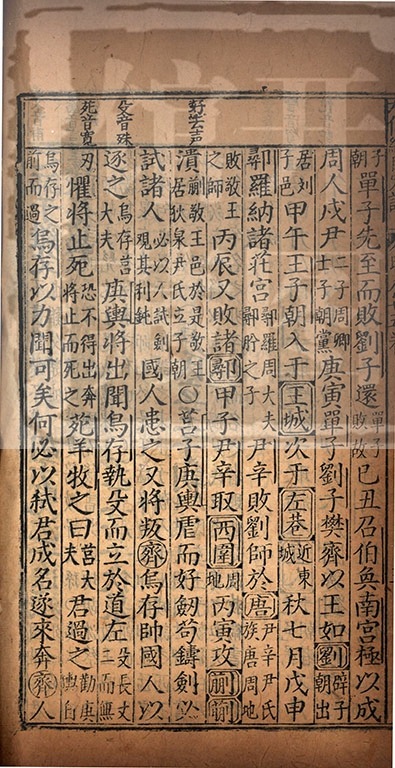 子朝單子先至而敗劉子還單子敗故己丑召伯奐南宮極以成
周人戍尹二子周卿士子朝黨庚寅單子劉子樊齊以王如劉辟子朝出
居劉子邑甲午王子朝入于王城次于左巷近東城秋七月戊申
鄩羅納諸莊宮鄩羅周大夫鄩肹之子尹辛敗劉師於唐尹辛尹氏族唐周地
敗敬王之師丙辰又敗諸鄩甲子尹辛取西闈周地丙寅攻蒯蒯
好去聲
潰蒯敬王邑於是敬王居狄泉尹氏立子朝〇莒子庚輿虐而好劒苟鑄劍必
試諸人必以人試劍觀其利鈍國人患之又將叛齊烏存帥國人以
殳音殊
逐之烏存莒大夫庚輿將出聞烏存執殳而立於道左殳長丈二而無
苑音寃
刃懼將止死恐不得出奔將止而死之苑羊牧之曰莒大夫君過之勸庚輿自
烏存前而過烏存以力聞可矣何必以弒君成名遂來奔齊人